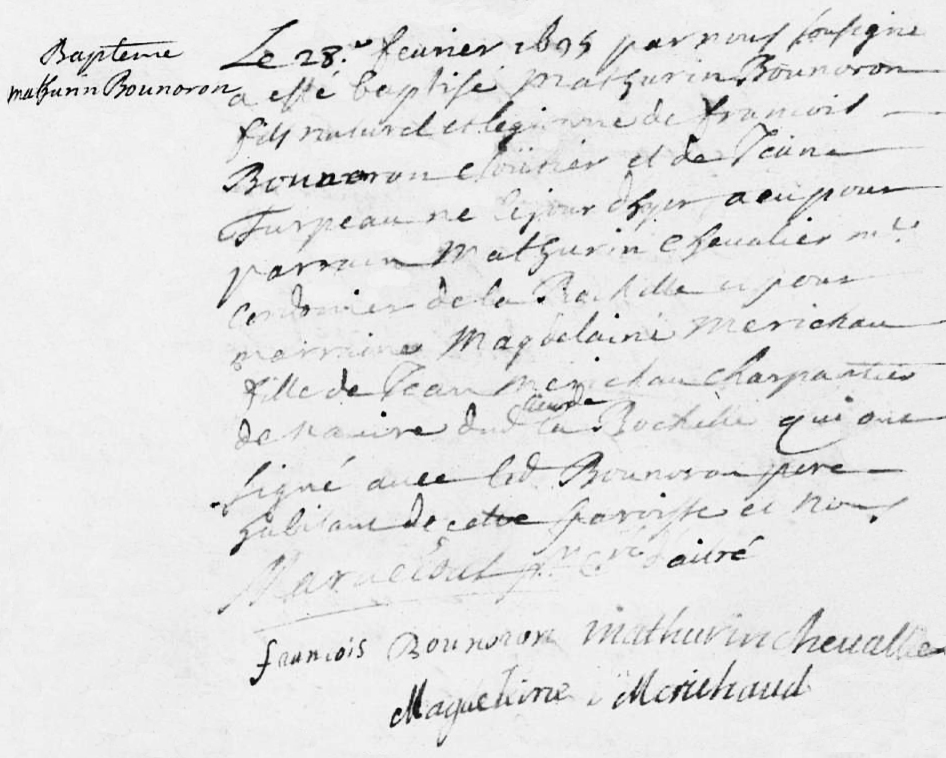 Bapteme
mathurin Bounoron
Le 28e fevrier 1695 par nous soussigne
a esté baptisé Mathurin Bounoron
fils naturel et legitime de francois
Bounoron cloutier et de Jeane
Turpeau ne le jour dhyer a eu pour
parrain Mathurin Chevalier me
cordonier de la Rochelle et pour
marraine Magdelaine Merichau
fille de Jean Merichau charpantier
de navire dud lieu de la Rochelle qui ont
signé avec led Bounoron pere
habitant de cette paroisse et nous
daitré
francois Bounoron mathurin chevallie
Magdelaine Merichaud